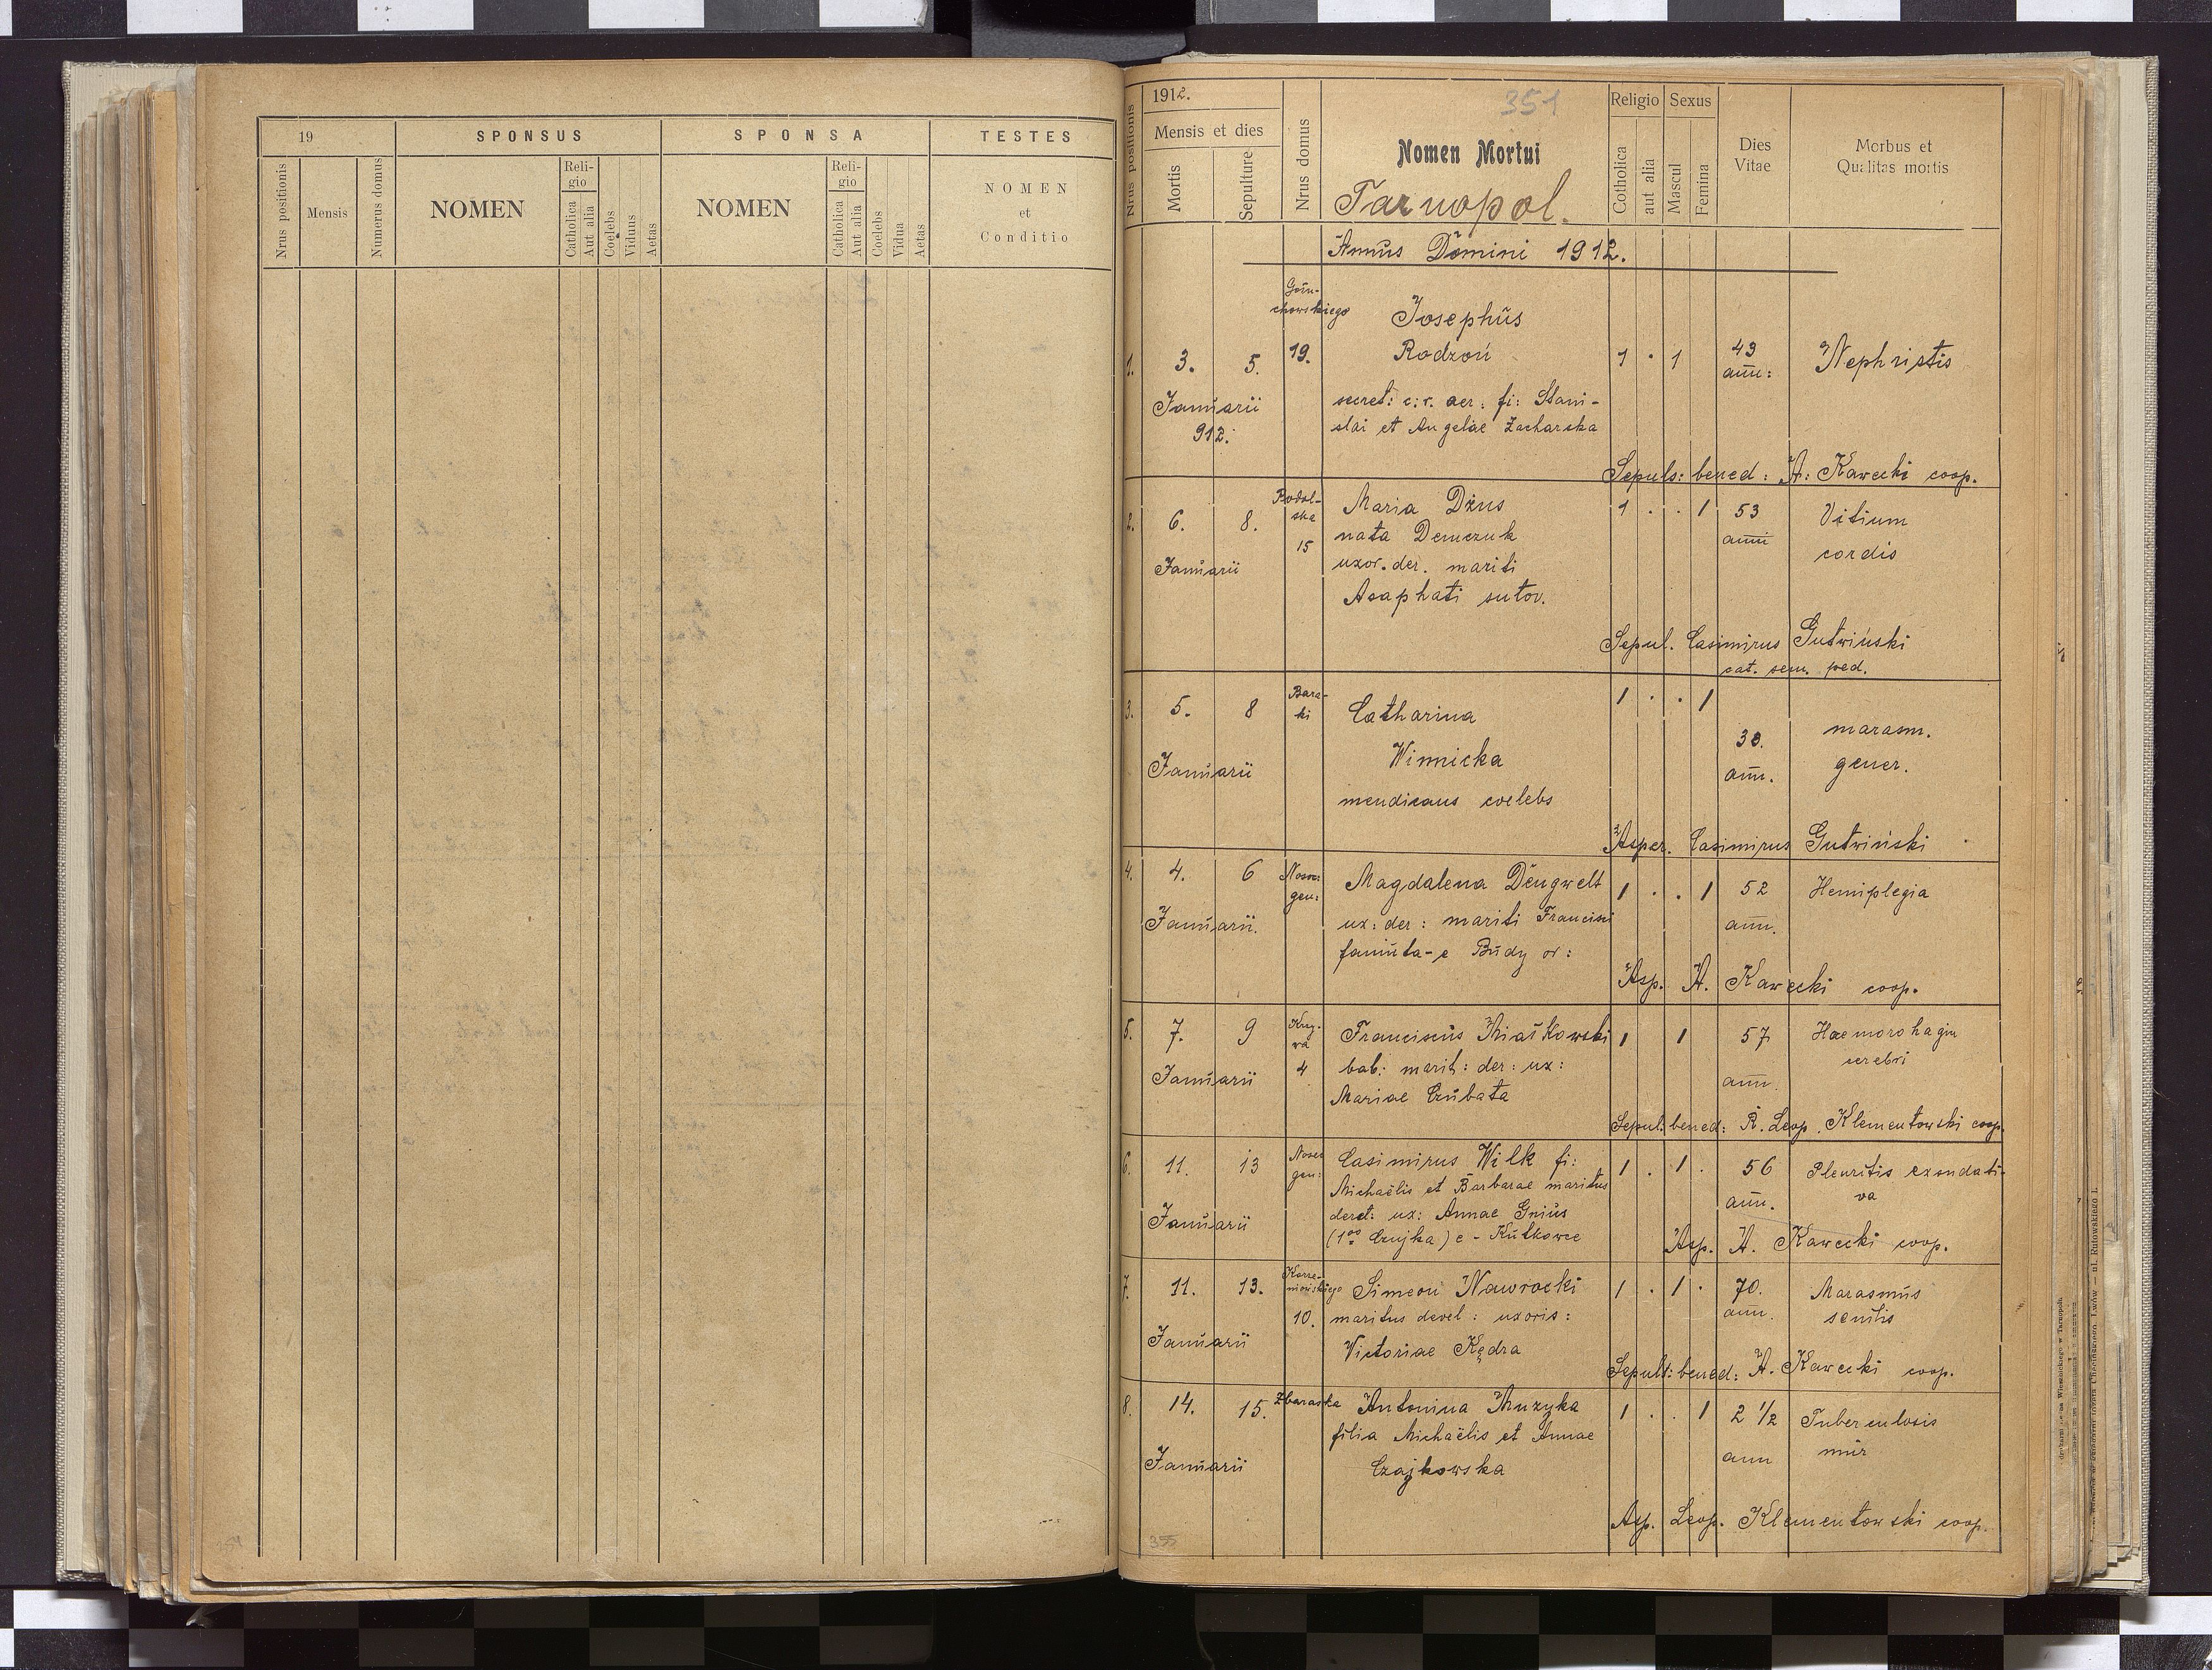 19
SPONSUS
SPONSA
TESTES
Nrus positionis
Mensis
Numerus domus
NOMEN
Reli-
gio
Catholica
Aut alia
Coelebs
Viduus
Aetas
NOMEN
Reli-
gio
Catholica
Aut alia
Coelebs
Vidua
Aetas
NOMEN
et
Conditio
351
Nrus positionis
1912.
Mensis et dies
Mortis
Sepulture
Nrus domus
Nomen Mortui
Tarnopol.
Religio
Cotholica
aut alia
Sexus
Mascul
Femina
Dies
Vitae
Morbus et
Qualitas mortis
Annus Domini 1912.
1. 3. 5.
Januarii
912.
Gołu-
chowskiego
19.
Josephus
Rodzoń
secret: c. r. aer. fi: Stani-
slai et Angelae Zacharska
1 . 1
43
ann:
Nephristis
Sepuls: bened: A: Kawecki coop.
2. 6. 8.
Januarii
Podol-
ska
15
Maria Dżus
nata Demczuk
uxor. der. mariti
Asaphati sutor.
1 . . 1
53
anni
Vitium
cordis
Sepul. Casimirus Gutwiński
cat. sem. ped.
3. 5. 8
Januarii
Bara-
ki
Catharina
Winnicka
mendicans coelebs
1 . . 1
30.
ann.
marasm.
gener.
Asper. Casimirus Gutwiński
4. 4. 6
Januarii.
Nosoc:
gen:
Magdalena Dengwelt
ux: der: mariti Francisci
famuta-e Budy or:
1 . . 1
52
ann.
Hemiplegia
Asp. A. Kawecki coop.
5. 7. 9
Januarii
4
Franciscus Miaśkowski
bab: marit: der: ux:
Mariae Czubata
1 1
57
ann.
Haemorohagia
cerebri
Sepul: bened: R. Leop. Klementowski coop.
6. 11. 13
Januarii
Nosoc
gen:
Casimirus Wilk fi:
Michaëlis et Barbarae maritus
derel: ux: Annae Gnius
(1oo Czujka) e - Kutkowce
1 . 1 .
56
ann.
Pleuritis exsudati-
va
Asp. A. Kawecki coop.
7. 11. 13.
Januarii
10.
Simeon Nawrocki
maritus derel: uxoris:
Victoriae Kędra
1 . 1 .
70.
ann.
Marasmus
senilis
Sepult: bened: A. Kawecki coop.
8. 14. 15.
Januarii
Zbaraska
Antonina Muzyka
filia Michaëlis et Annae
Czajkowska
1 . . 1
2 1/2
ann
Tuberculosis
mir
Asp. Leop. Klementowski coop.
355